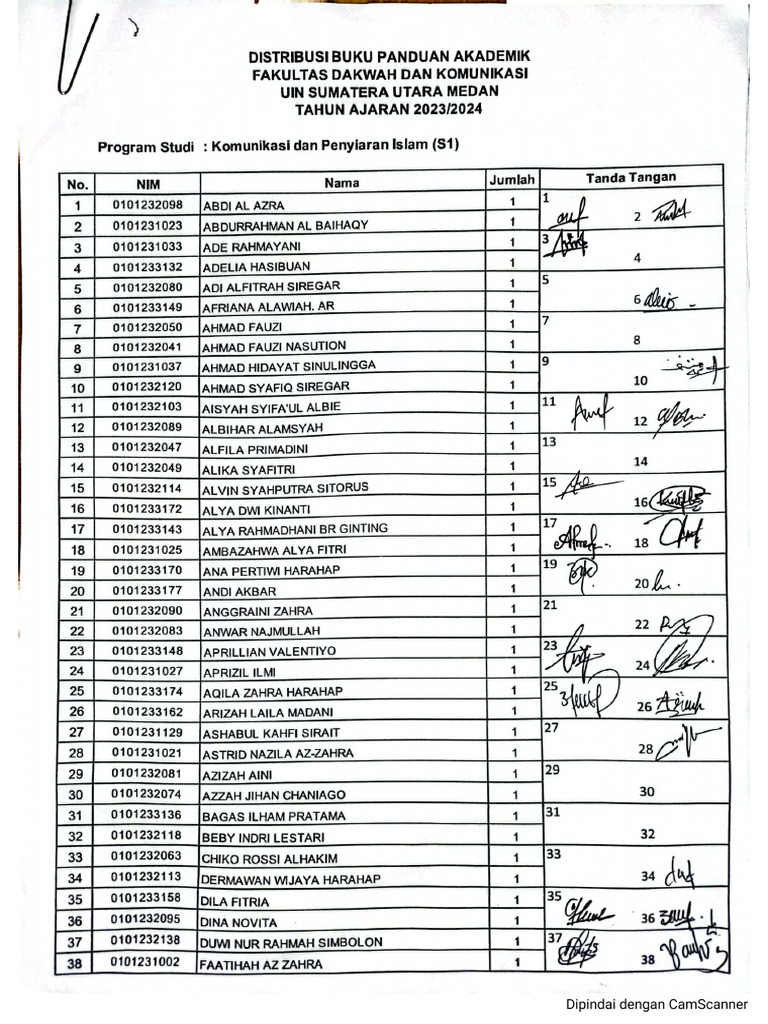 DISTRIBUSI BUKU PANDUAN AKADEMIK
FAKULTAS DAKWAH DAN KOMUNIKASI
UIN SUMATERA UTARA MEDAN
TAHUN AJARAN 2023/2024
Program Studi : Komunikasi dan Penyiaran Islam (S1)
No. NIM Nama Jumlah Tanda Tangan
1 0101232098 ABDI AL AZRA 1 1
2 0101231023 ABDURRAHMAN AL BAIHAQY 1 2
3 0101231033 ADE RAHMAYANI 1 3
4 0101233132 ADELIA HASIBUAN 1 4
5 0101232080 ADI ALFITRAH SIREGAR 1 5
6 0101233149 AFRIANA ALAWIAH. AR 1 6
7 0101232050 AHMAD FAUZI 1 7
8 0101232041 AHMAD FAUZI NASUTION 1 8
9 0101231037 AHMAD HIDAYAT SINULINGGA 1 9
10 0101232120 AHMAD SYAFIQ SIREGAR 1 10
11 0101232103 AISYAH SYIFA'UL ALBIE 1 11
12 0101232089 ALBIHAR ALAMSYAH 1 12
13 0101232047 ALFILA PRIMADINI 1 13
14 0101232049 ALIKA SYAFITRI 1 14
15 0101232114 ALVIN SYAHPUTRA SITORUS 1 15
16 0101233172 ALYA DWI KINANTI 1 16
17 0101233143 ALYA RAHMADHANI BR GINTING 1 17
18 0101231025 AMBAZAHWA ALYA FITRI 1 18
19 0101233170 ANA PERTIWI HARAHAP 1 19
20 0101233177 ANDI AKBAR 1 20
21 0101232090 ANGGRAINI ZAHRA 1 21
22 0101232083 ANWAR NAJMULLAH 1 22
23 0101233148 APRILLIAN VALENTIYO 1 23
24 0101231027 APRIZIL ILMI 1 24
25 0101233174 AQILA ZAHRA HARAHAP 1 25
26 0101233162 ARIZAH LAILA MADANI 1 26
27 0101231129 ASHABUL KAHFI SIRAIT 1 27
28 0101231021 ASTRID NAZILA AZ-ZAHRA 1 28
29 0101232081 AZIZAH AINI 1 29
30 0101232074 AZZAH JIHAN CHANIAGO 1 30
31 0101233136 BAGAS ILHAM PRATAMA 1 31
32 0101232118 BEBY INDRI LESTARI 1 32
33 0101232063 CHIKO ROSSI ALHAKIM 1 33
34 0101232113 DERMAWAN WIJAYA HARAHAP 1 34
35 0101233158 DILA FITRIA 1 35
36 0101232095 DINA NOVITA 1 36
37 0101232138 DUWI NUR RAHMAH SIMBOLON 1 37
38 0101231002 FAATIHAH AZ ZAHRA 1 38
Dipindai dengan CamScanner